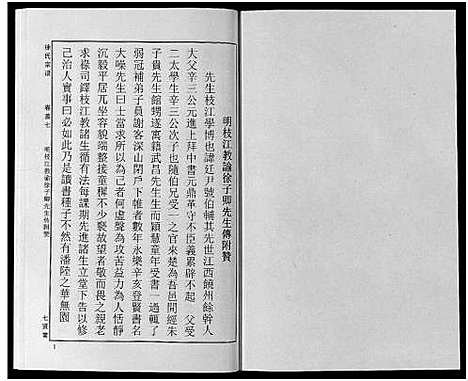 明枝江教諭徐子卿先生傳附贊
先生枝江學博也諱廷尹號伯輔其先世江西饒州餘幹人
大父辛三公元進上拜中書元鼎革守不臣義累辟不起　父受
二太學生辛三公次子也隨伯兄受一之官來楚為吾邑開經朱
子貴先生館甥遂寓籍武昌先生生而穎慧童年一過輒了
弱冠補弟子員謝客深山閉戶下帷者數年永樂辛亥登賢書名
大噪先生曰士當求其在己者何虛聲為攻苦益力為人恬靜
沉毅平居凡坐端整接童穉不少褻故望者敬而畏之親老
求祿司鐸枝江教諸生循有法每課期先進諸生立堂下告以修
己治人實事曰必如此乃是讀書種子不然有潘陸之華無園
徐氏宗譜
卷首七
明枝江教諭徐子卿先生傳附贊
一